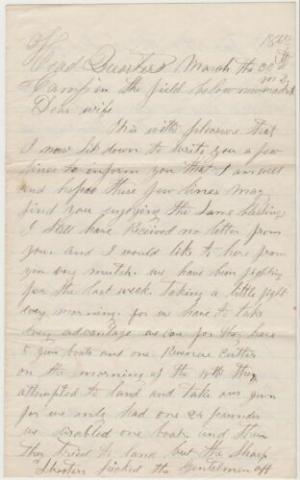 Head Quarters March the 30
Camp in the field below
Dear wife
this with pleasure that
I now sit down to write you a few
lines to inform you that I am well
and hopes these few lines may
find you enjoying the same blessing
I still have Recived no letter from
you. and I would like to here from
you very mutch. we have been fighting
for the last week. Taking a little fight
every morning. for we have to take
every advantage we can for they have
5 gun boats and one Revenue Cutter
on the morning of the 18th they
attempted to land and take our gun
for we only had one 24 pounder
we crabled one boat. and then
they tried to land but the sharp
Shooters picked the gentelmen off